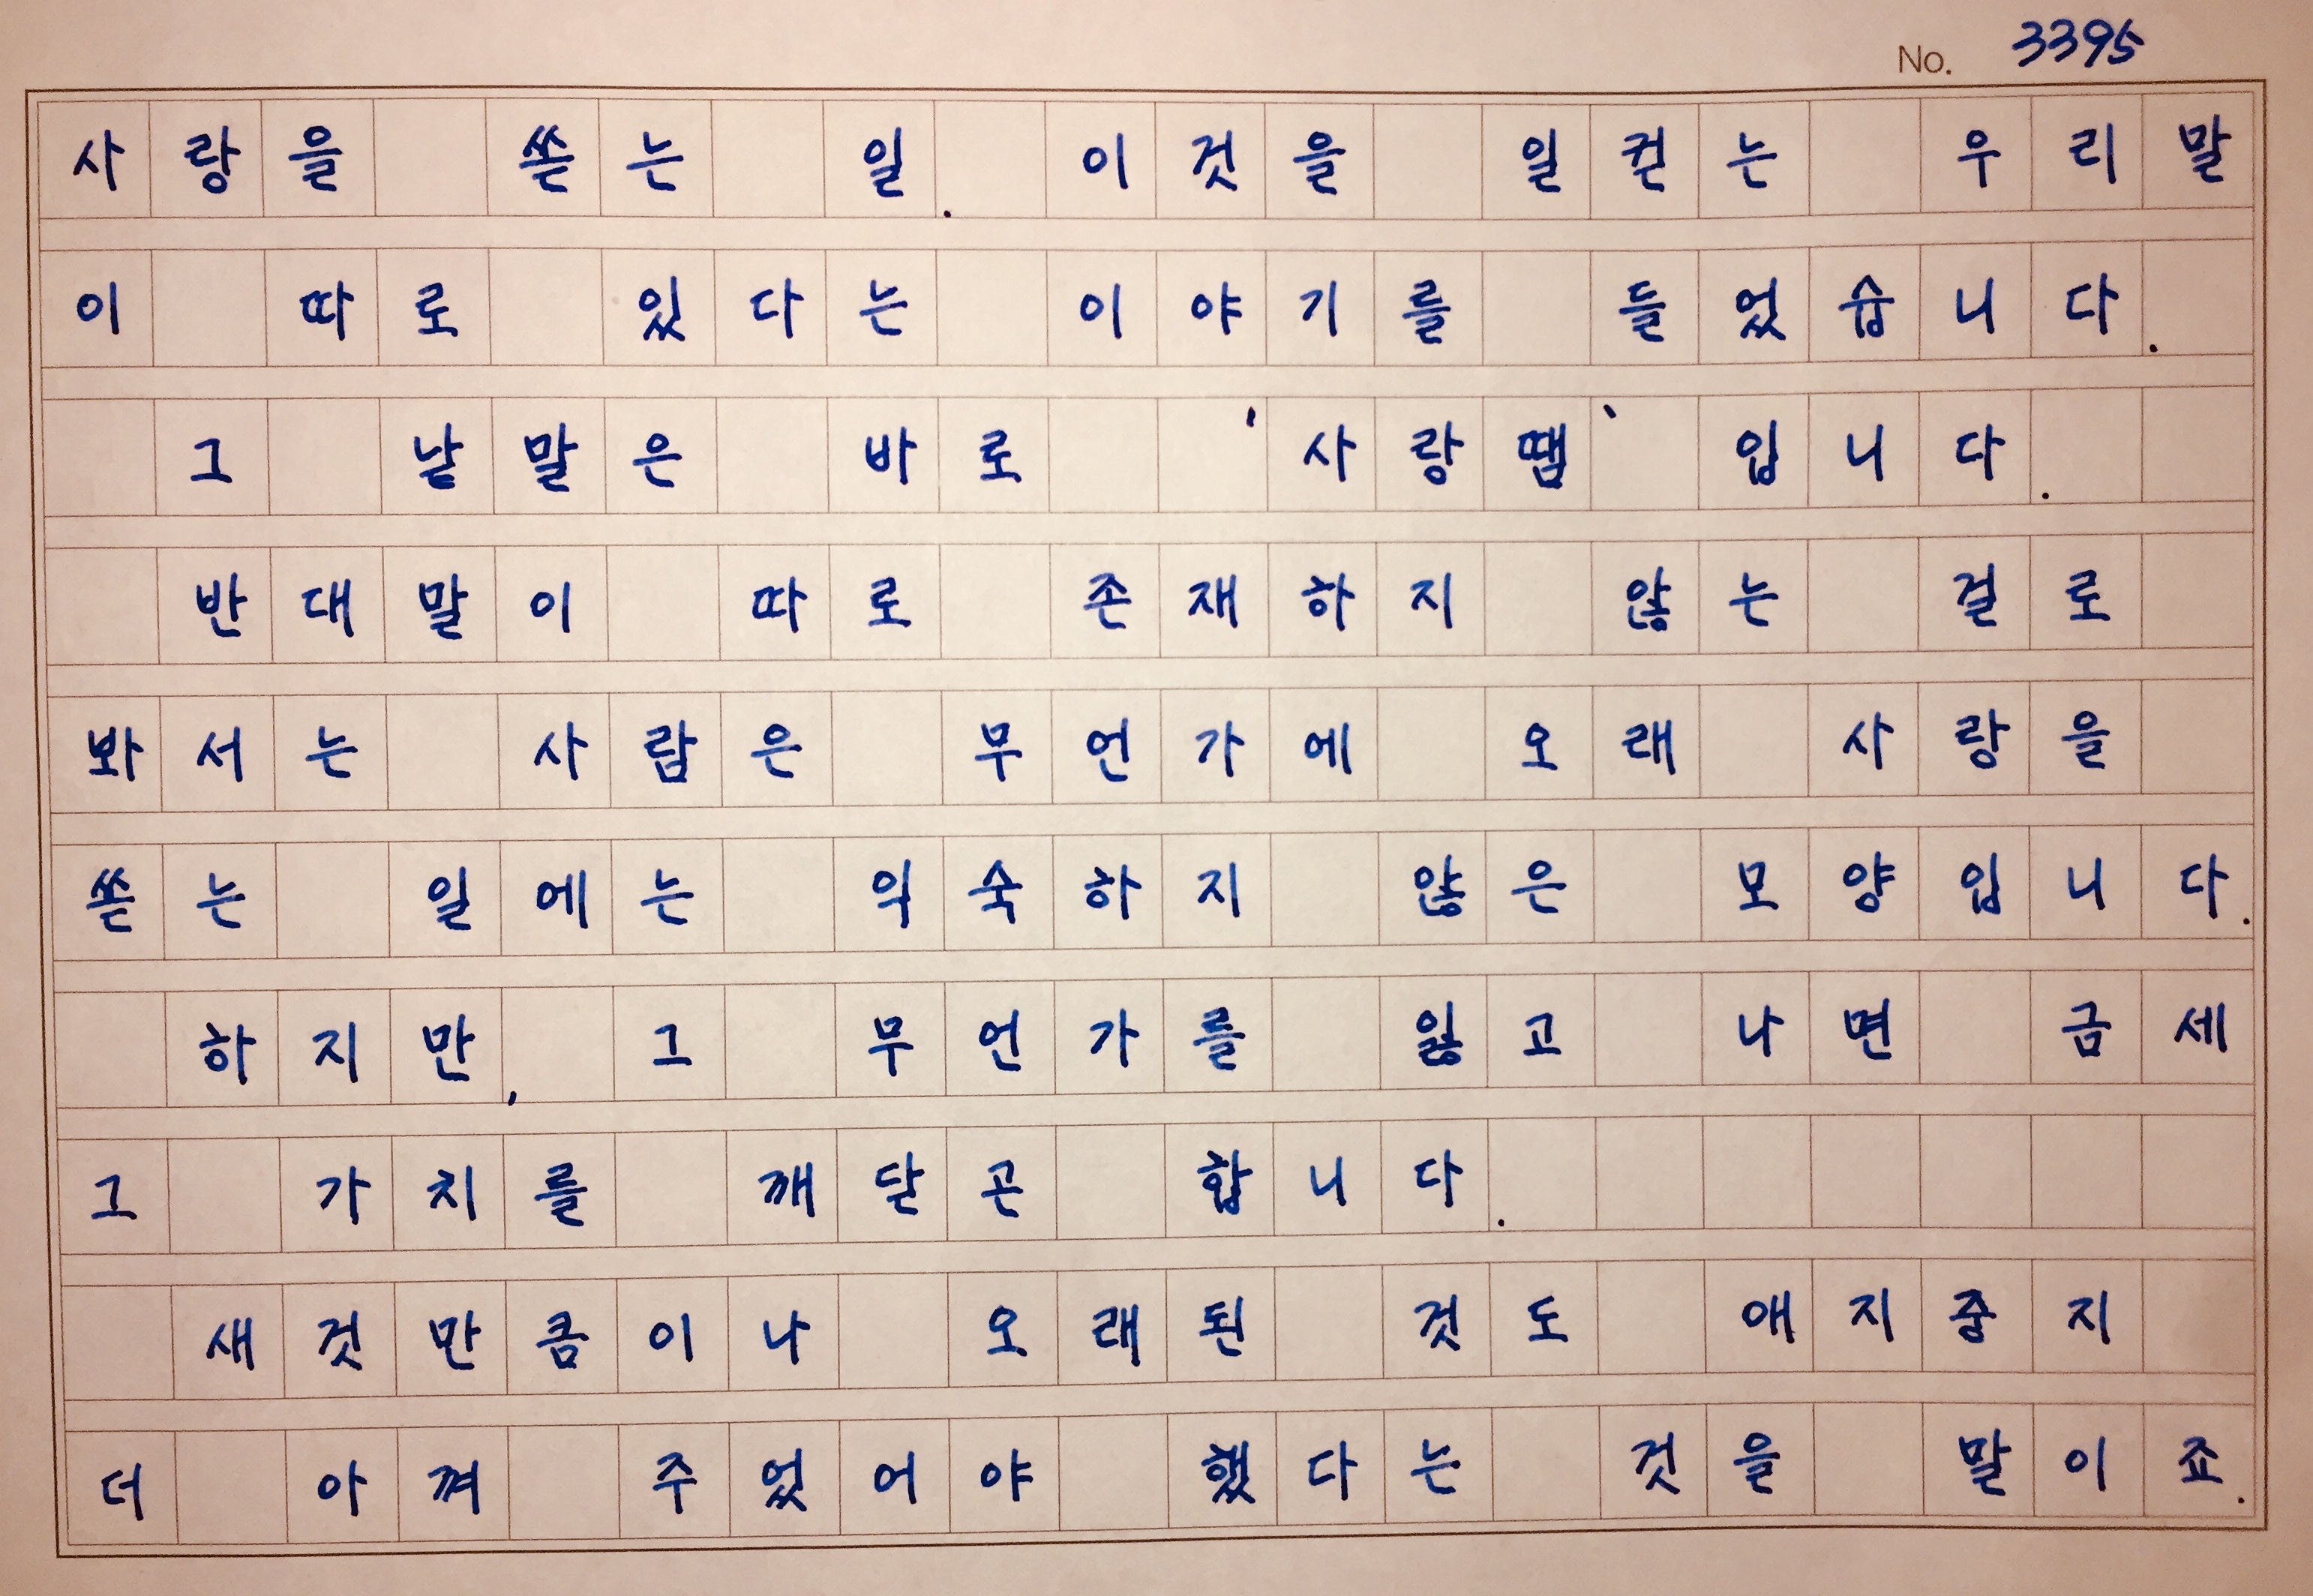 No. 3395
사랑을 쏟는 일. 이것을 일컫는 우리말
이 따로 있다는 이야기를 들었습니다.
그 낱말은 바로 '사랑땜' 입니다.
반대말이 따로 존재하지 않는 걸로
봐서는 사람은 무언가에 오래 사랑을
쏟는 일에는 익숙하지 않은 모양입니다.
하지만, 그 무언가를 잃고 나면 금세
그 가치를 깨닫곤 합니다.
새것만큼이나 오래된 것도 애지중지
더 아껴 주었어야 했다는 것을 말이죠.